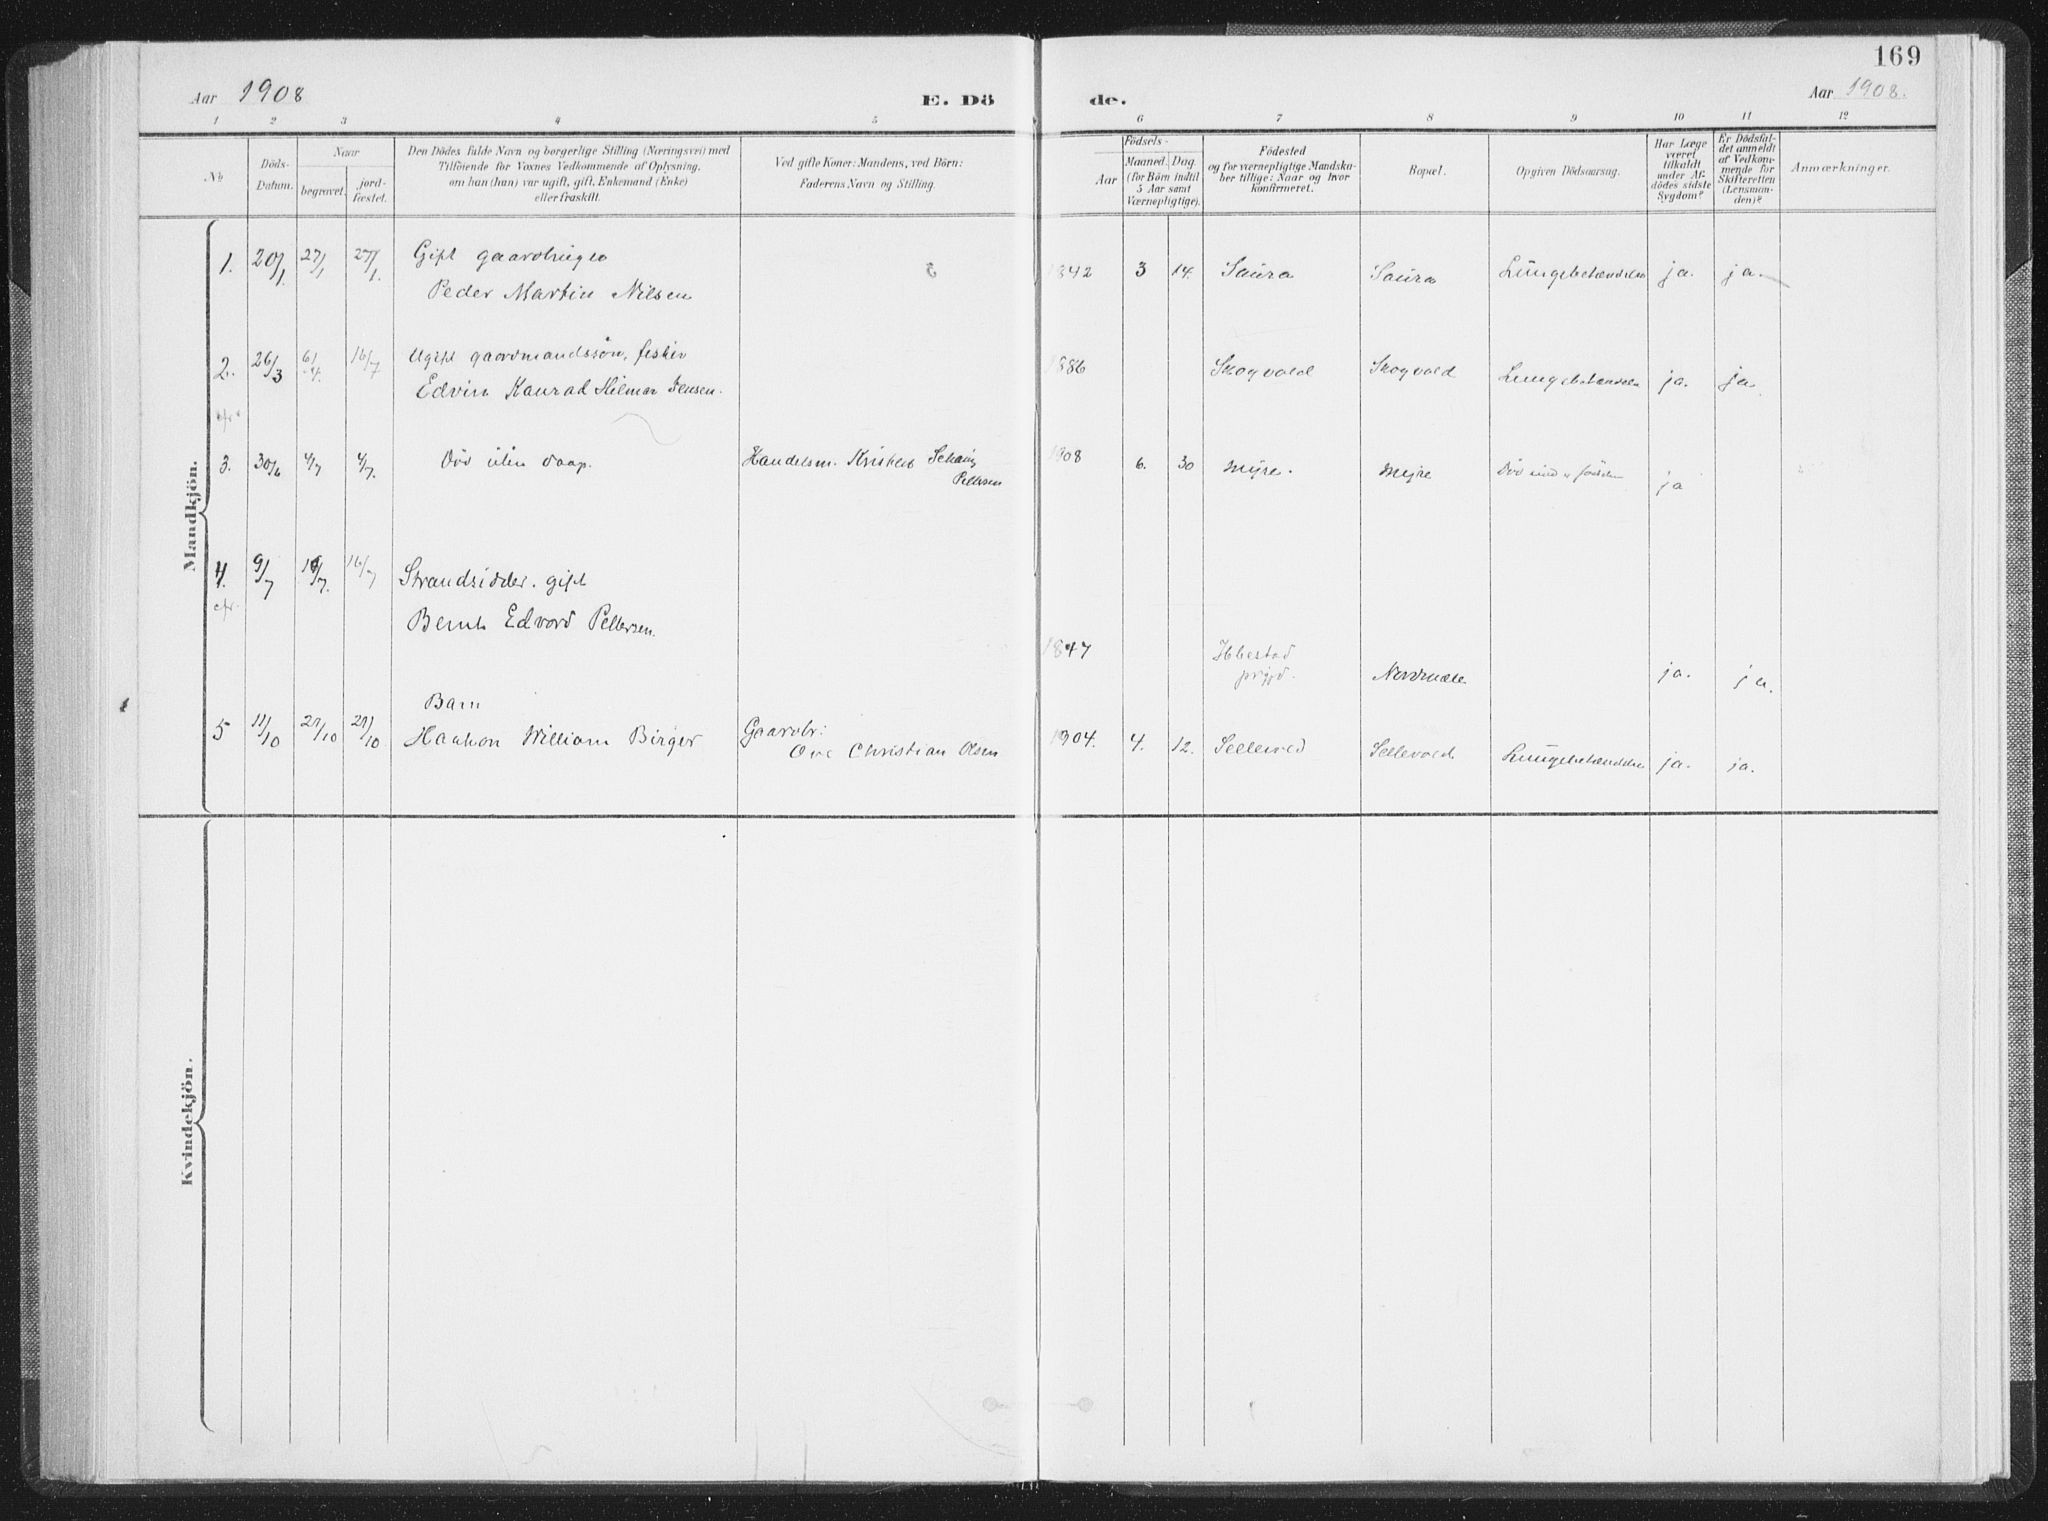 169
Aar 1908
E. Dö
de.
Aar 1908.
1 2 3 4 5 6 7 8 9 10 11 12
No
Döds-
Datum.
Naar
begravet.
jord-
fæstet.
Den Dödes fulde Navn og borgerlige Stilling (Næringsvei) med
Tilföiende for Voxnes Vedkommende af Oplysning,
om han (hun) var ugift, gift, Enkemand (Enke)
eller fraskilt.
Ved gifte Koner: Mandens, ved Börn:
Faderens Navn og Stilling.
Födsels-
Aar
Maaned.
Dag.
(for Börn indtil
5 Aar samt
Værnepligtige).
Födested
og for værnepligtige Mandska-
ber tillige: Naar og hvor
konfirmeret.
Bopæl.
Opgiven Dödsaarsag.
Har Læge
været
tilkaldt
under Af-
dödes sidste
Sygdom?
Er Dödsfal-
det anmeldt
af Vedkom-
mende for
Skifteretten
(Lensman-
den)?
Anmærkninger.
Mandkjön.
1. 20/1 27/1 27/1. Gift gaardbruger
Peder Martin Nilsen
1842 3 14. Saura Saura Lungebetændelse ja. ja.
2. 26/3 6/4. 16/7 Ugift gaardmandssön, fisker
Edvin Konrad Hilmar Jensen.
1886 Skogvold Skogvold Lungebetændelse ja. ja.
3. 30/6 4/7 4/7. Död uden daap. Handelsm. Kristen Schøning
Pettersen
1908 6. 30 Myre. Myre ja
4. 9/7 16/7 Strandsidder. gift
cfr.
Bernt Edvard Pettersen.
1847 Ibbestad
prgjd. ja. ja.
Barn
5 11/10 21/10 21/10 Haakon William Birger Gaardbr:
Ove Christian Olsen
1904. 4. 12. Sellevold Sellevold Lungebetændelse ja. ja.
Kvindekjön.